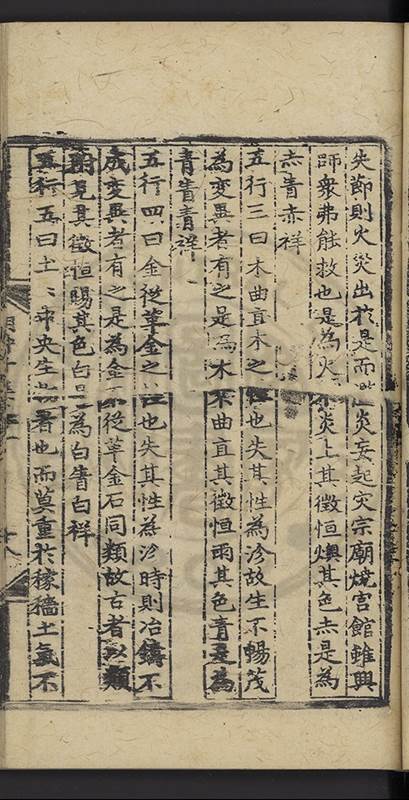 失節則火災出於是而炎妄起災宗廟燒宮館雖興
師衆弗能救也是為火不炎上其徵恒燠其色赤是為
赤眚赤祥
五行三曰木曲直木之性也失其性為沴故生不暢茂
為變異者有之是為木不曲直其徵恒雨其色青是為
青眚青祥
五行四曰金從革金之性也失其性為沴時則冶鑄不
成變異者有之是為金不從革金石同類故古者以類
附見其徵恒暘其色白是為白眚白祥
五行五曰土土中央生物者也而莫重於稼穡土氣不